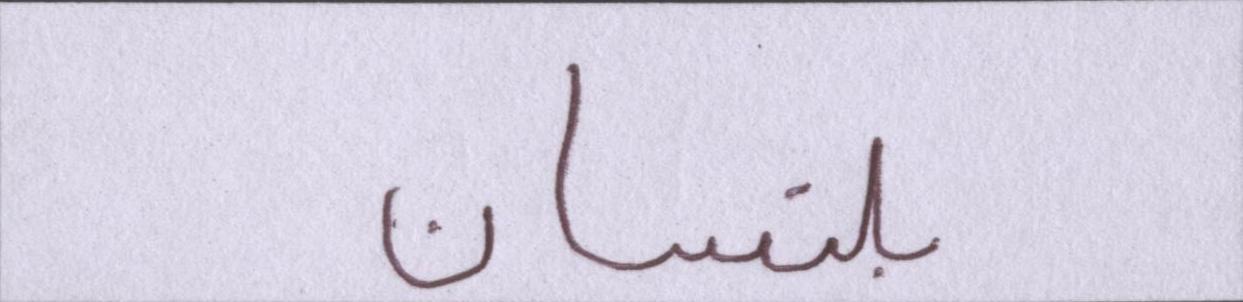 بلتسان